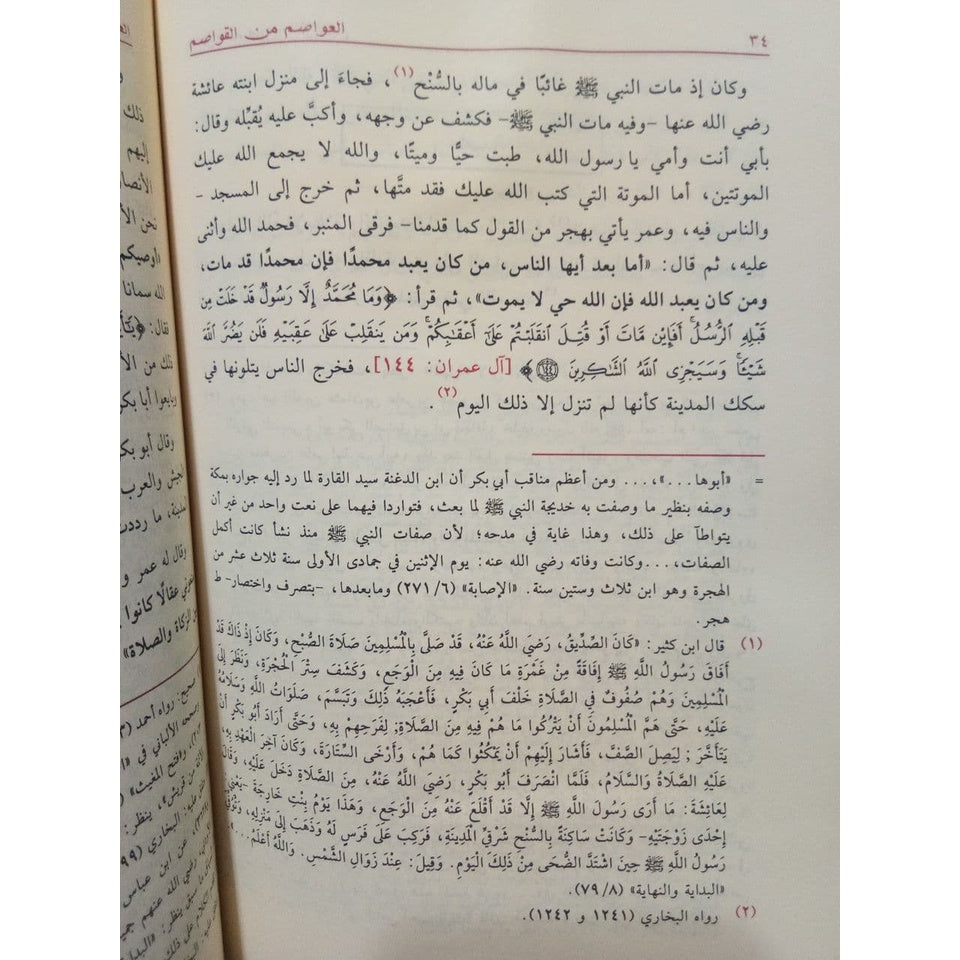 ٣٤
العواصم من القواصم
وكان إذ مات النبي ﷺ غائبًا في ماله بالسُّنْح(١)، فجاءَ إلى منزل ابنته عائشة
رضي الله عنها -وفيه مات النبي ﷺ- فكشف عن وجهه، وأكبَّ عليه يُقبِّله وقال:
بأبي أنت وأمي يا رسول الله، طبت حيًّا وميتًا، والله لا يجمع الله عليك
الموتتين، أما الموتة التي كتب الله عليك فقد متَّها، ثم خرج إلى المسجد -
والناس فيه، وعمر يأتي بهجر من القول كما قدمنا- فرقى المنبر، فحمد الله وأثنى
عليه، ثم قال: «أما بعد أيها الناس، من كان يعبد محمدًا فإن محمدًا قد مات،
ومن كان يعبد الله فإن الله حي لا يموت»، ثم قرأ: ﴿وَمَا مُحَمَّدٌ إِلَّا رَسُولٌ قَدْ خَلَتْ مِن
قَبْلِهِ ٱلرُّسُلُ ۚ أَفَإِي۟ن مَّاتَ أَوْ قُتِلَ ٱنقَلَبْتُمْ عَلَىٰٓ أَعْقَـٰبِكُمْ ۚ وَمَن يَنقَلِبْ عَلَىٰ عَقِبَيْهِ فَلَن يَضُرَّ ٱللَّهَ
شَيْـًٔا ۗ وَسَيَجْزِى ٱللَّهُ ٱلشَّـٰكِرِينَ ١٤٤﴾ [آل عمران: ١٤٤]، فخرج الناس يتلونها في
سكك المدينة كأنها لم تنزل إلا ذلك اليوم(٢).
= «أبوها...»،... ومن أعظم مناقب أبي بكر أن ابن الدغنة سيد القارة لما رد إليه جواره بمكة
وصفه بنظير ما وصفت به خديجة النبي ﷺ لما بعث، فتواردا فيهما على نعت واحد من غير أن
يتواطآ على ذلك، وهذا غاية في مدحه؛ لأن صفات النبي ﷺ منذ نشأ كانت أكمل
الصفات،...وكانت وفاته رضي الله عنه: يوم الإثنين في جمادى الأولى سنة ثلاث عشر من
الهجرة وهو ابن ثلاث وستين سنة. «الإصابة» (٦/ ٢٧١) ومابعدها، -بتصرف واختصار- ط
هجر.
(١) قال ابن كثير: «كَانَ الصِّدِّيقُ، رَضِيَ اللَّهُ عَنْهُ، قَدْ صَلَّى بِالْمُسْلِمِينَ صَلَاةَ الصُّبْحِ، وَكَانَ إِذْ ذَاكَ قَدْ
أَفَاقَ رَسُولُ اللَّهِ ﷺ إِفَاقَةً مِنْ غَمْرَةِ مَا كَانَ فِيهِ مِنَ الْوَجَعِ، وَكَشَفَ سِتْرَ الْحُجْرَةِ، وَنَظَرَ إِلَى
الْمُسْلِمِينَ وَهُمْ صُفُوفٌ فِي الصَّلَاةِ خَلْفَ أَبِي بَكْرٍ، فَأَعْجَبَهُ ذَلِكَ وَتَبَسَّمَ، صَلَوَاتُ اللَّهِ وَسَلَامُهُ
عَلَيْهِ، حَتَّى هَمَّ الْمُسْلِمُونَ أَنْ يَتْرُكُوا مَا هُمْ فِيهِ مِنَ الصَّلَاةِ; لِفَرَحِهِمْ بِهِ، وَحَتَّى أَرَادَ أَبُو بَكْرٍ أَنْ
يَتَأَخَّرَ; لِيَصِلَ الصَّفَّ، فَأَشَارَ إِلَيْهِمْ أَنْ يَمْكُثُوا كَمَا هُمْ، وَأَرْخَى السِّتَارَةَ، وَكَانَ آخِرَ الْعَهْدِ بِهِ
عَلَيْهِ الصَّلَاةُ وَالسَّلَامُ، فَلَمَّا انْصَرَفَ أَبُو بَكْرٍ، رَضِيَ اللَّهُ عَنْهُ، مِنَ الصَّلَاةِ دَخَلَ عَلَيْهِ، وَقَالَ
لِعَائِشَةَ: مَا أَرَى رَسُولَ اللَّهِ ﷺ إِلَّا قَدْ أَقْلَعَ عَنْهُ مِنَ الْوَجَعِ، وَهَذَا يَوْمُ بِنْتِ خَارِجَةَ -يَعْنِي
إِحْدَى زَوْجَتَيْهِ- وَكَانَتْ سَاكِنَةً بِالسُّنْحِ شَرْقِيَّ الْمَدِينَةِ، فَرَكِبَ عَلَى فَرَسٍ لَهُ وَذَهَبَ إِلَى مَنْزِلِهِ، وَتُوُفِّيَ
رَسُولُ اللَّهِ ﷺ حِينَ اشْتَدَّ الضُّحَى مِنْ ذَلِكَ الْيَوْمِ. وَقِيلَ: عِنْدَ زَوَالِ الشَّمْسِ. وَاللَّهُ أَعْلَمُ...».
«البداية والنهاية» (٨/ ٧٩).
(٢) رواه البخاري (١٢٤١ و ١٢٤٢).